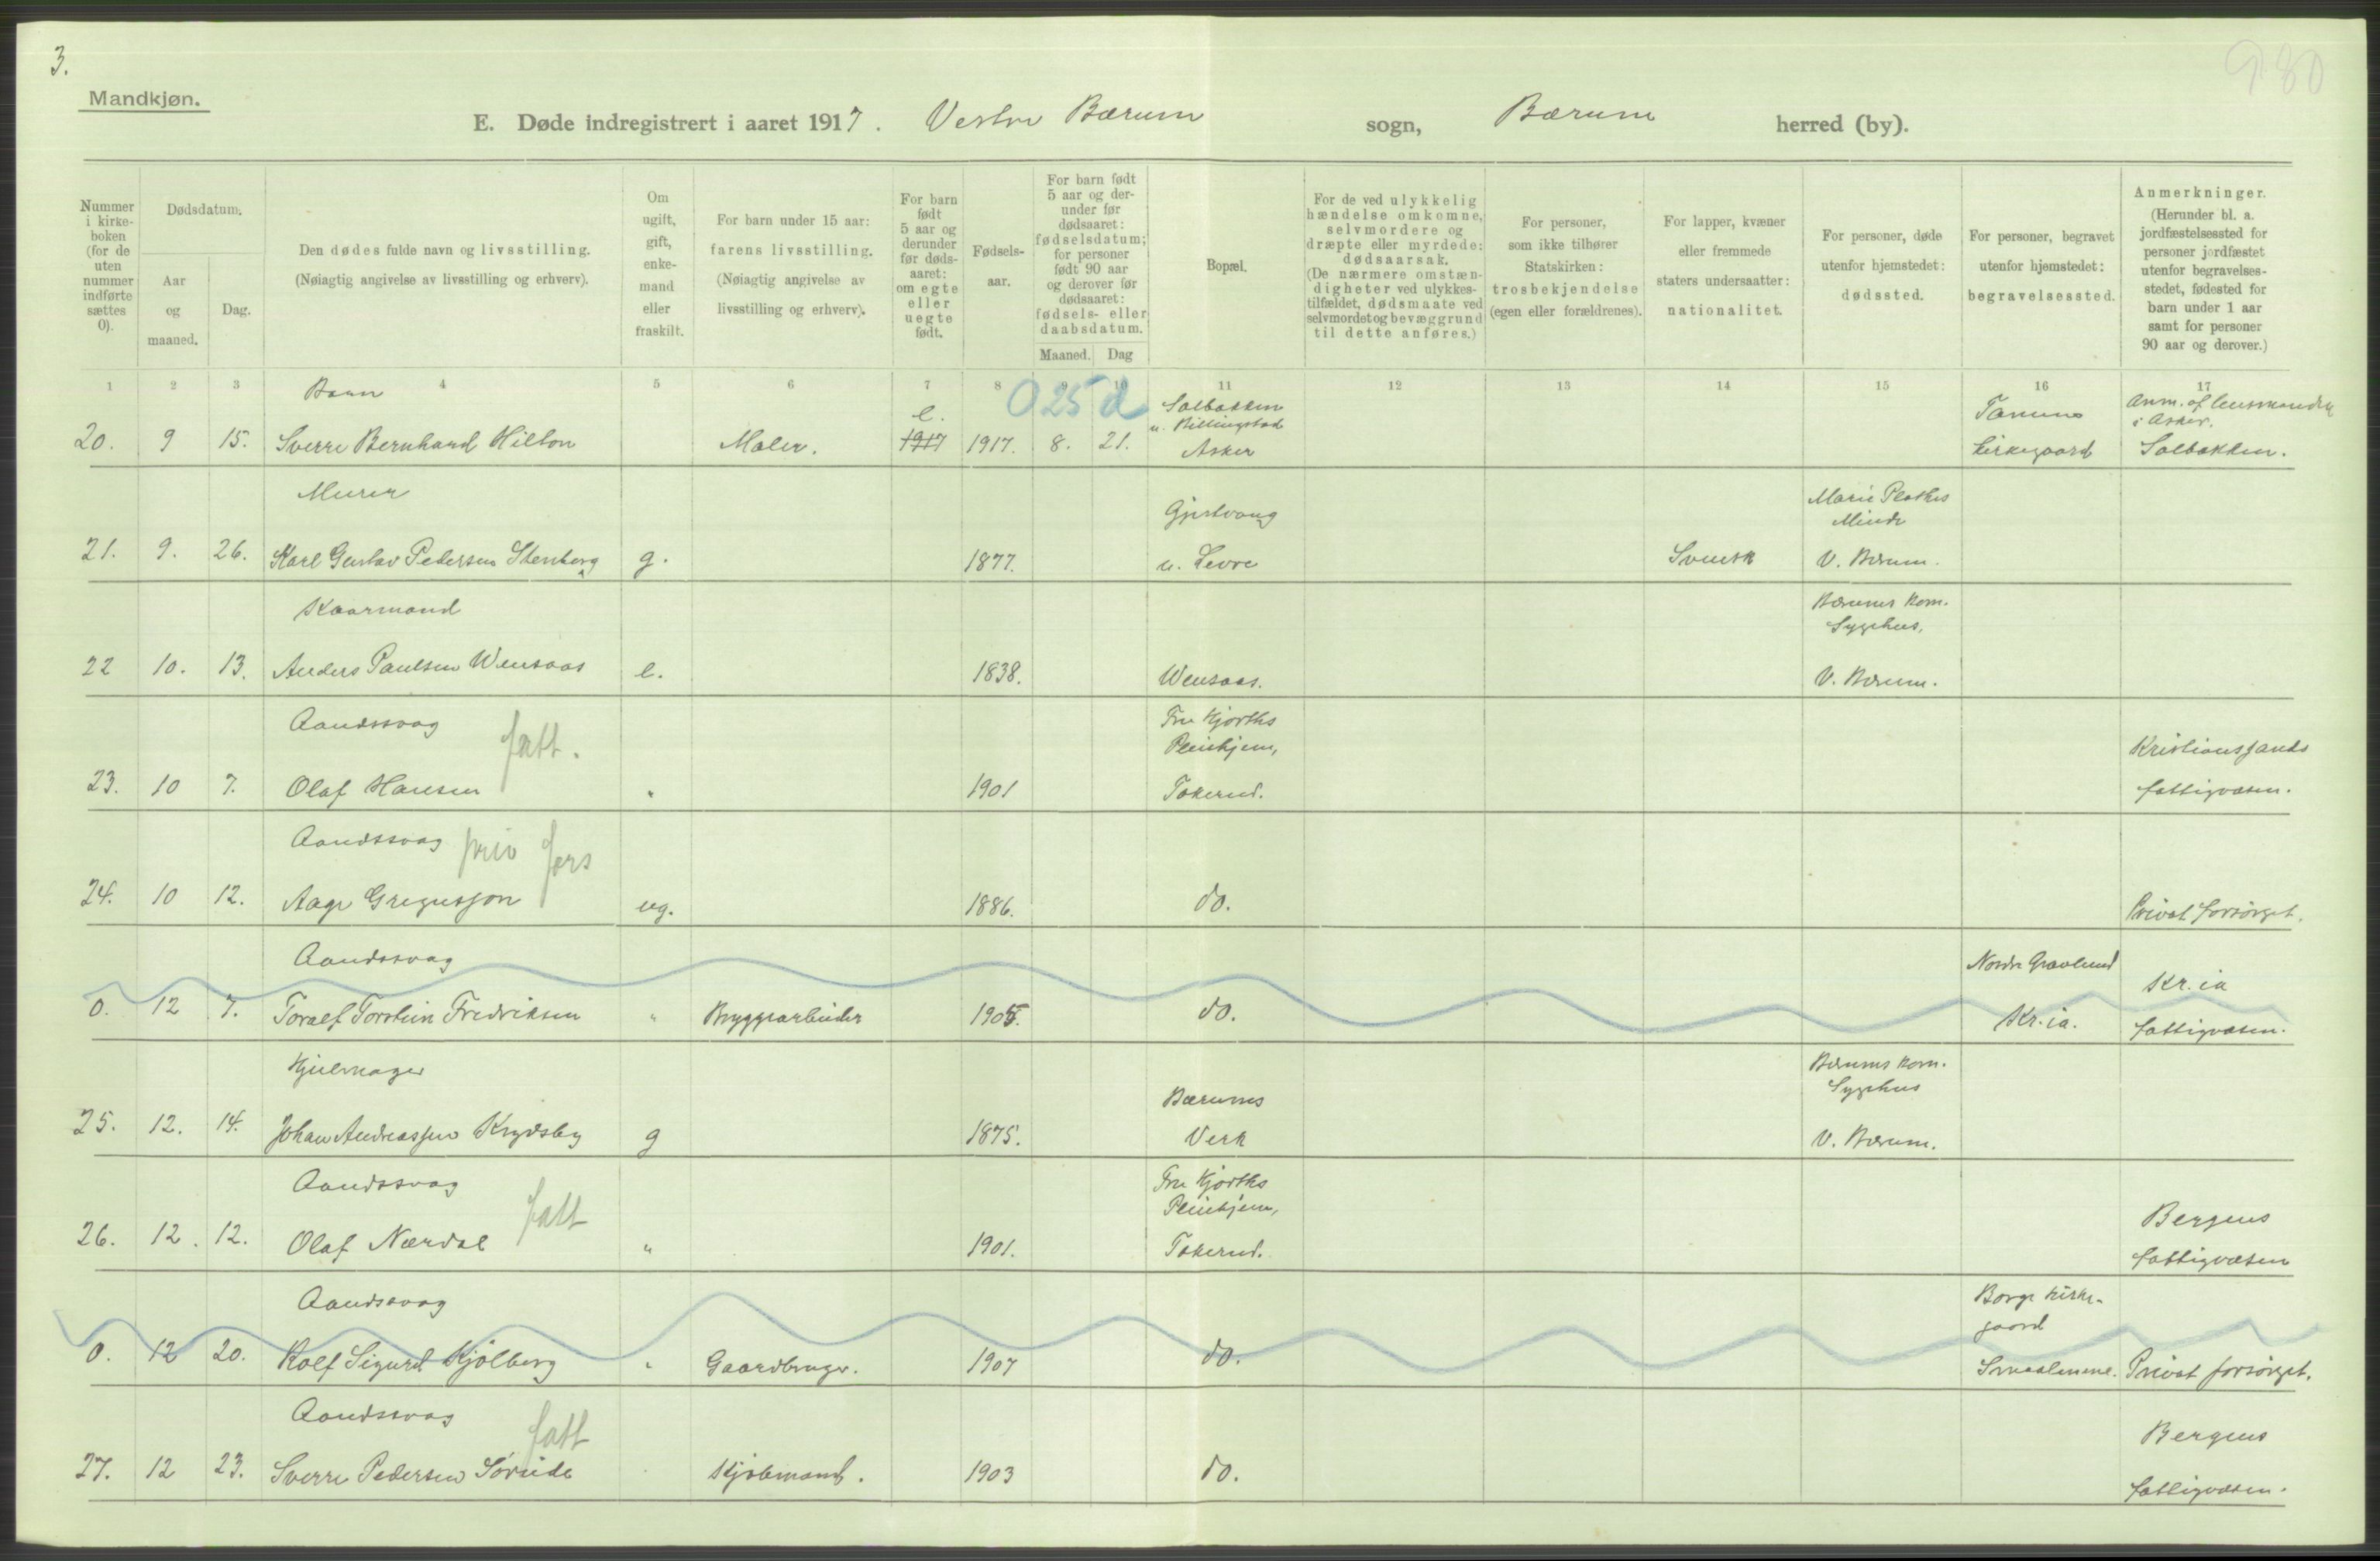 3.
980
Mandkjøn.
E. Døde indregistrert i aaret 1917. Vestre Bærum sogn, Bærum herred (by).
Nummer i kirkeboken (for de uten nummer indførte sættes 0).
Dødsdatum.
Aar og maaned.
Dag.
Den dødes fulde navn og livsstilling.
(Nøiagtig angivelse av livsstilling og erhverv).
Om ugift, gift, enkemand eller fraskilt.
For barn under 15 aar: farens livsstilling.
(Nøiagtig angivelse av livsstilling og erhverv).
For barn født 5 aar og derunder før dødsaaret: om egte eller uegte født.
Fødselsaar.
For barn født 5 aar og derunder før dødsaaret: fødselsdatum; for personer født 90 aar og derover før dødsaaret: fødsels- eller daabsdatum.
Maaned. Dag
Bopæl.
For de ved ulykkelig hændelse omkomne, selvmordere og dræpte eller myrdede: dødsaarsak.
(De nærmere omstændigheter ved ulykkestilfældet, dødsmaate ved selvmordet og bevæggrund til dette anføres.)
For personer, som ikke tilhører Statskirken: trosbekjendelse (egen eller forældrenes).
For lapper, kvæner eller fremmede staters undersaatter: nationalitet.
For personer, døde utenfor hjemstedet: dødssted.
For personer, begravet utenfor hjemstedet: begravelsessted.
Anmerkninger.
(Herunder bl. a. jordfæstelsessted for personer jordfæstet utenfor begravelsesstedet, fødested for barn under 1 aar samt for personer 90 aar og derover.)
1 2 3 4 5 6 7 8 9 11 12 13 14 15 16 17
0 25 d
Barn
e. Solbakken u. Billingstad Tanum Anm. af lensmanden i Asker.
20. 9 15. Sverre Bernhard Hilton Maler. 1917 1917. 8. 21. Asker kirkegaard Solbakken.
Murer Gjestvang Marie Plathes Minde
21. 9. 26. Karl Gustav Pedersen Stenberg g. 1877. u. Levre Svensk V. Bærum.
Kaarmand Bærums kom. Sygehus,
22 10. 13. Anders Paulsen Wensaas e. 1838. Wensaas. V. Bærum.
Aandssvag fatt. Fru Hjorths Pleiehjem, Kristianssands
23. 10 7. Olaf Hansen " 1901 Tokerud. fattigvæsen.
Aandssvag priv fors
24. 10 12. Aage Gregussjon ug. 1886. do. Privat forsørget.
Aandssvag Nordre Gravlund Kr.ia
0. 12 7. Toralf Torstein Fredriksen " Bryggearbeider 1905. do. Kr.ia. fattigvæsen.
Hjulmager Bærums Bærums kom. Sygehus
25. 12. 14. Johan Andreassen Krydsby g 1875. Verk V. Bærum.
Aandssvag fatt Fru Hjorths Pleiehjem, Bergens
26. 12. 12. Olaf Nærdal " 1901. Tokerud. fattigvæsen
Aandssvag Borge kirkegaard
0. 12 20. Rolf Sigurd Kjølberg " Gaardbruger. 1907 do. Smaalenene. Privat forsørget.
Aandssvag fatt Bergens
27. 12 23. Sverre Pedersen Søreide Kjøbmand. 1903 do. fattigvæsen.